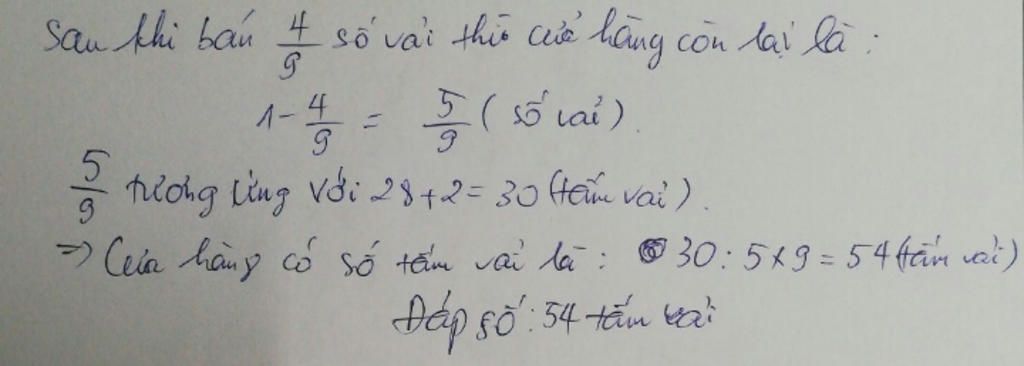 Sau khi bán 4/9 số vải thì cửa hàng còn lại là :
1 - 4/9 = 5/9 ( số vải ) .
5/9 tương ứng với 28 + 2 = 30 (tấm vải ) .
=> Cửa hàng có số tấm vải là : 30 : 5 x 9 = 54 (tấm vải )
Đáp số : 54 tấm vải